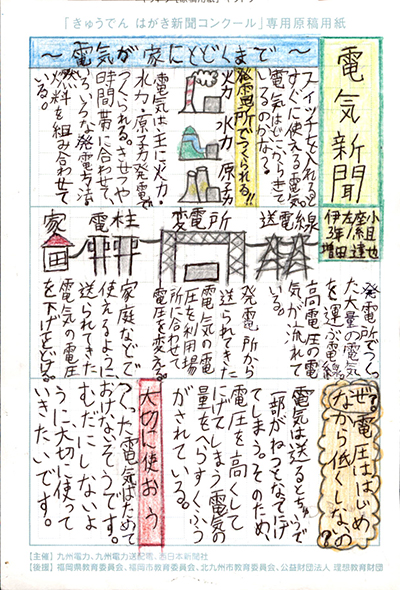 「きゅうでん はがき新聞コンクール」専用原稿用紙
電気新聞
小
座組
左
伊3年
増田達也
～電気が家にとどくまで～
スイッチを入れると
すぐに使える電気。
電気はどこからきて
いるのかなぁ。
発電所でつくられる!!
火力 水力 原子力
電気は主に火力・
水力・原子力発電で
つくられる。きせつや
時間帯に合わせて、
いろいろな発電方法
や燃料を組み合わせて
いる。
家 電柱 変電所 送電線
発電所でつくっ
た大量の電気
を運ぶ電線。
高電圧の電
気が流れて
発電所から
送られてきた
電気の電
圧を利用場
所に合わせて
電圧を変える。
家庭などで
使えるように
送られてきた
電気の電圧
を下げてとどける。
なぜ?電圧ははじめ
から低くしないの?
電気は送るとちゅうで
一部がねつとなってにげ
てしまう。そのため、
電圧を高くして
にげてしまう電気の
量をへらすくふう
がされている。
大切に使おう
つくった電気はためて
おけないそうです。
むだにしないよ
うに大切に使って
いきたいです。
【主催】九州電力、九州電力送配電、西日本新聞社
【後援】福岡県教育委員会、福岡市教育委員会、北九州市教育委員会、公益財団法人 理想教育財団